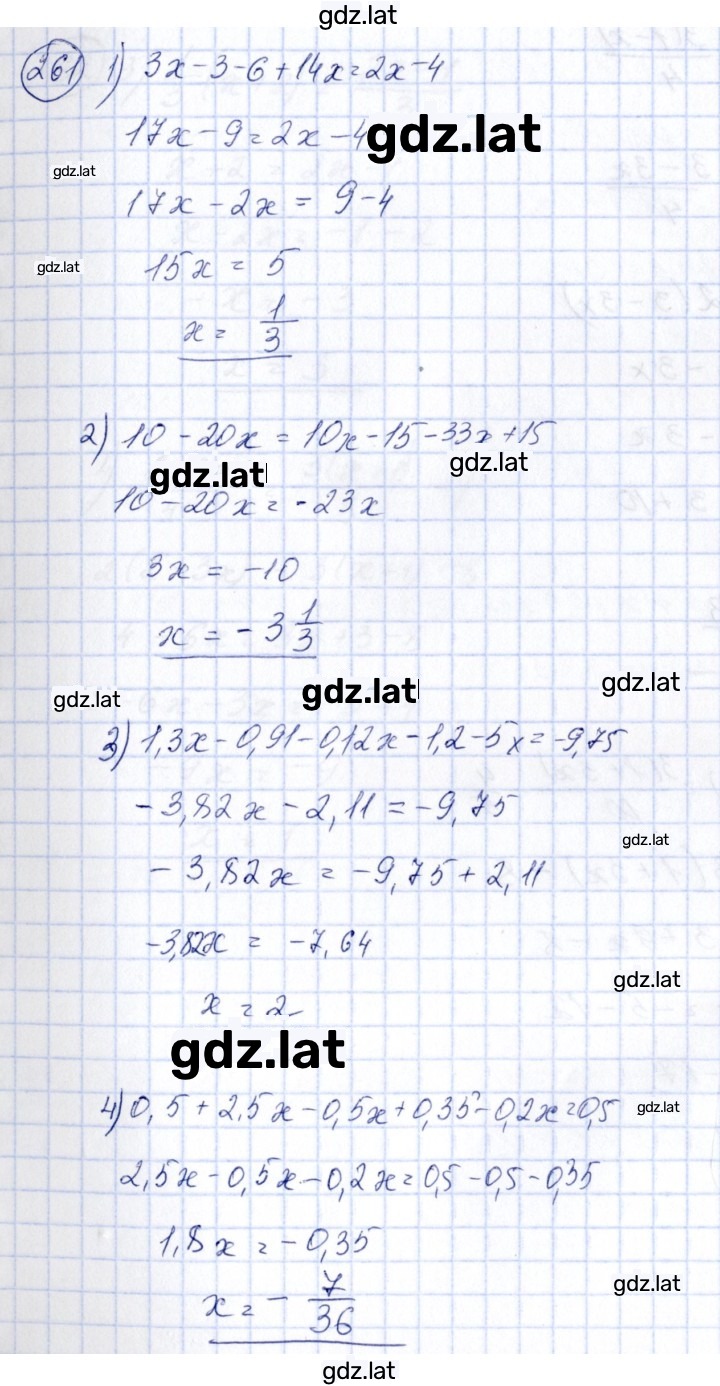 gdz.lat
261) 1) 3x - 3 - 6 + 14x = 2x - 4
17x - 9 = 2x - 4
gdz.lat
gdz.lat
17x - 2x = 9 - 4
gdz.lat
15x = 5
x = 1/3
2) 10 - 20x = 10x - 15 - 33x + 15
gdz.lat
gdz.lat
10 - 20x = -23x
3x = -10
x = -3 1/3
gdz.lat
gdz.lat
gdz.lat
3) 1,3x - 0,91 - 0,12x - 1,2 - 5x = -9,75
-3,82x - 2,11 = -9,75
gdz.lat
-3,82x = -9,75 + 2,11
-3,82x = -7,64
gdz.lat
x = 2
gdz.lat
4) 0,5 + 2,5x - 0,5x + 0,35 - 0,2x = 0,5
gdz.lat
2,5x - 0,5x - 0,2x = 0,5 - 0,5 - 0,35
1,8x = -0,35
gdz.lat
x = - 7/36
gdz.lat